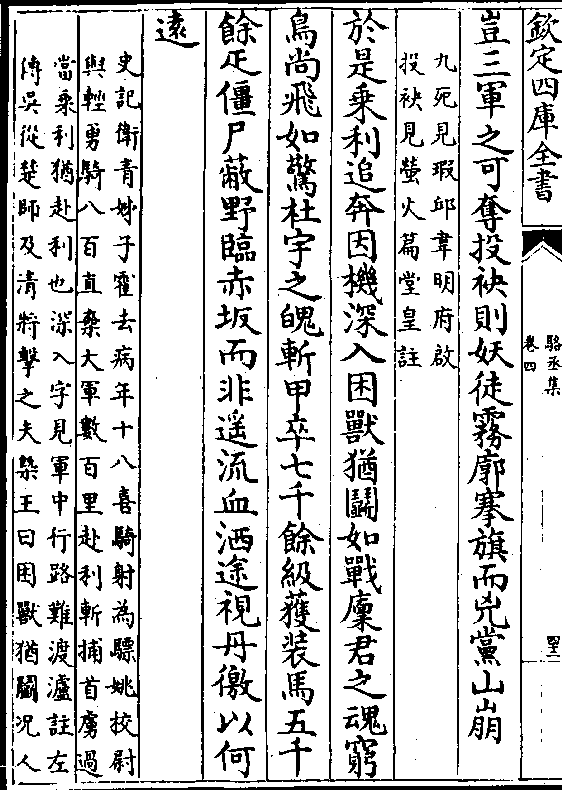 欽定四庫全書
駱丞集
卷四
豈三軍之可奪投袂則妖徒霧廓搴旗而兇黨山崩
九死見瑕邱韋明府啟
投袂見螢火篇堂皇註
於是乗利追奔因機深入困獸猶鬭如戰廩君之魂窮
鳥尚飛如驚杜宇之魄斬甲卒七千餘級獲装馬五千
餘疋僵尸蔽野臨赤坂而非遥流血洒途視丹徼以何
遠
史記衛青姊子霍去病年十八喜騎射為驃姚校尉
與輕勇騎八百直棄大軍數百里赴利斬捕首虜過
當乗利猶赴利也深入字見軍中行路難渡瀘註左
傳吳從楚師及清將擊之夫槩王曰困獸猶鬭况人